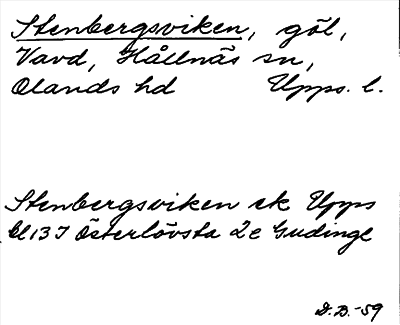 Stenbergsviken, göl,
Vavd, Hållnäs sn,
Olands hd Upps. l.
Stenbergsviken ek Upps
bl 13 I Österlövsta 2 e Gudinge
D.B.-59